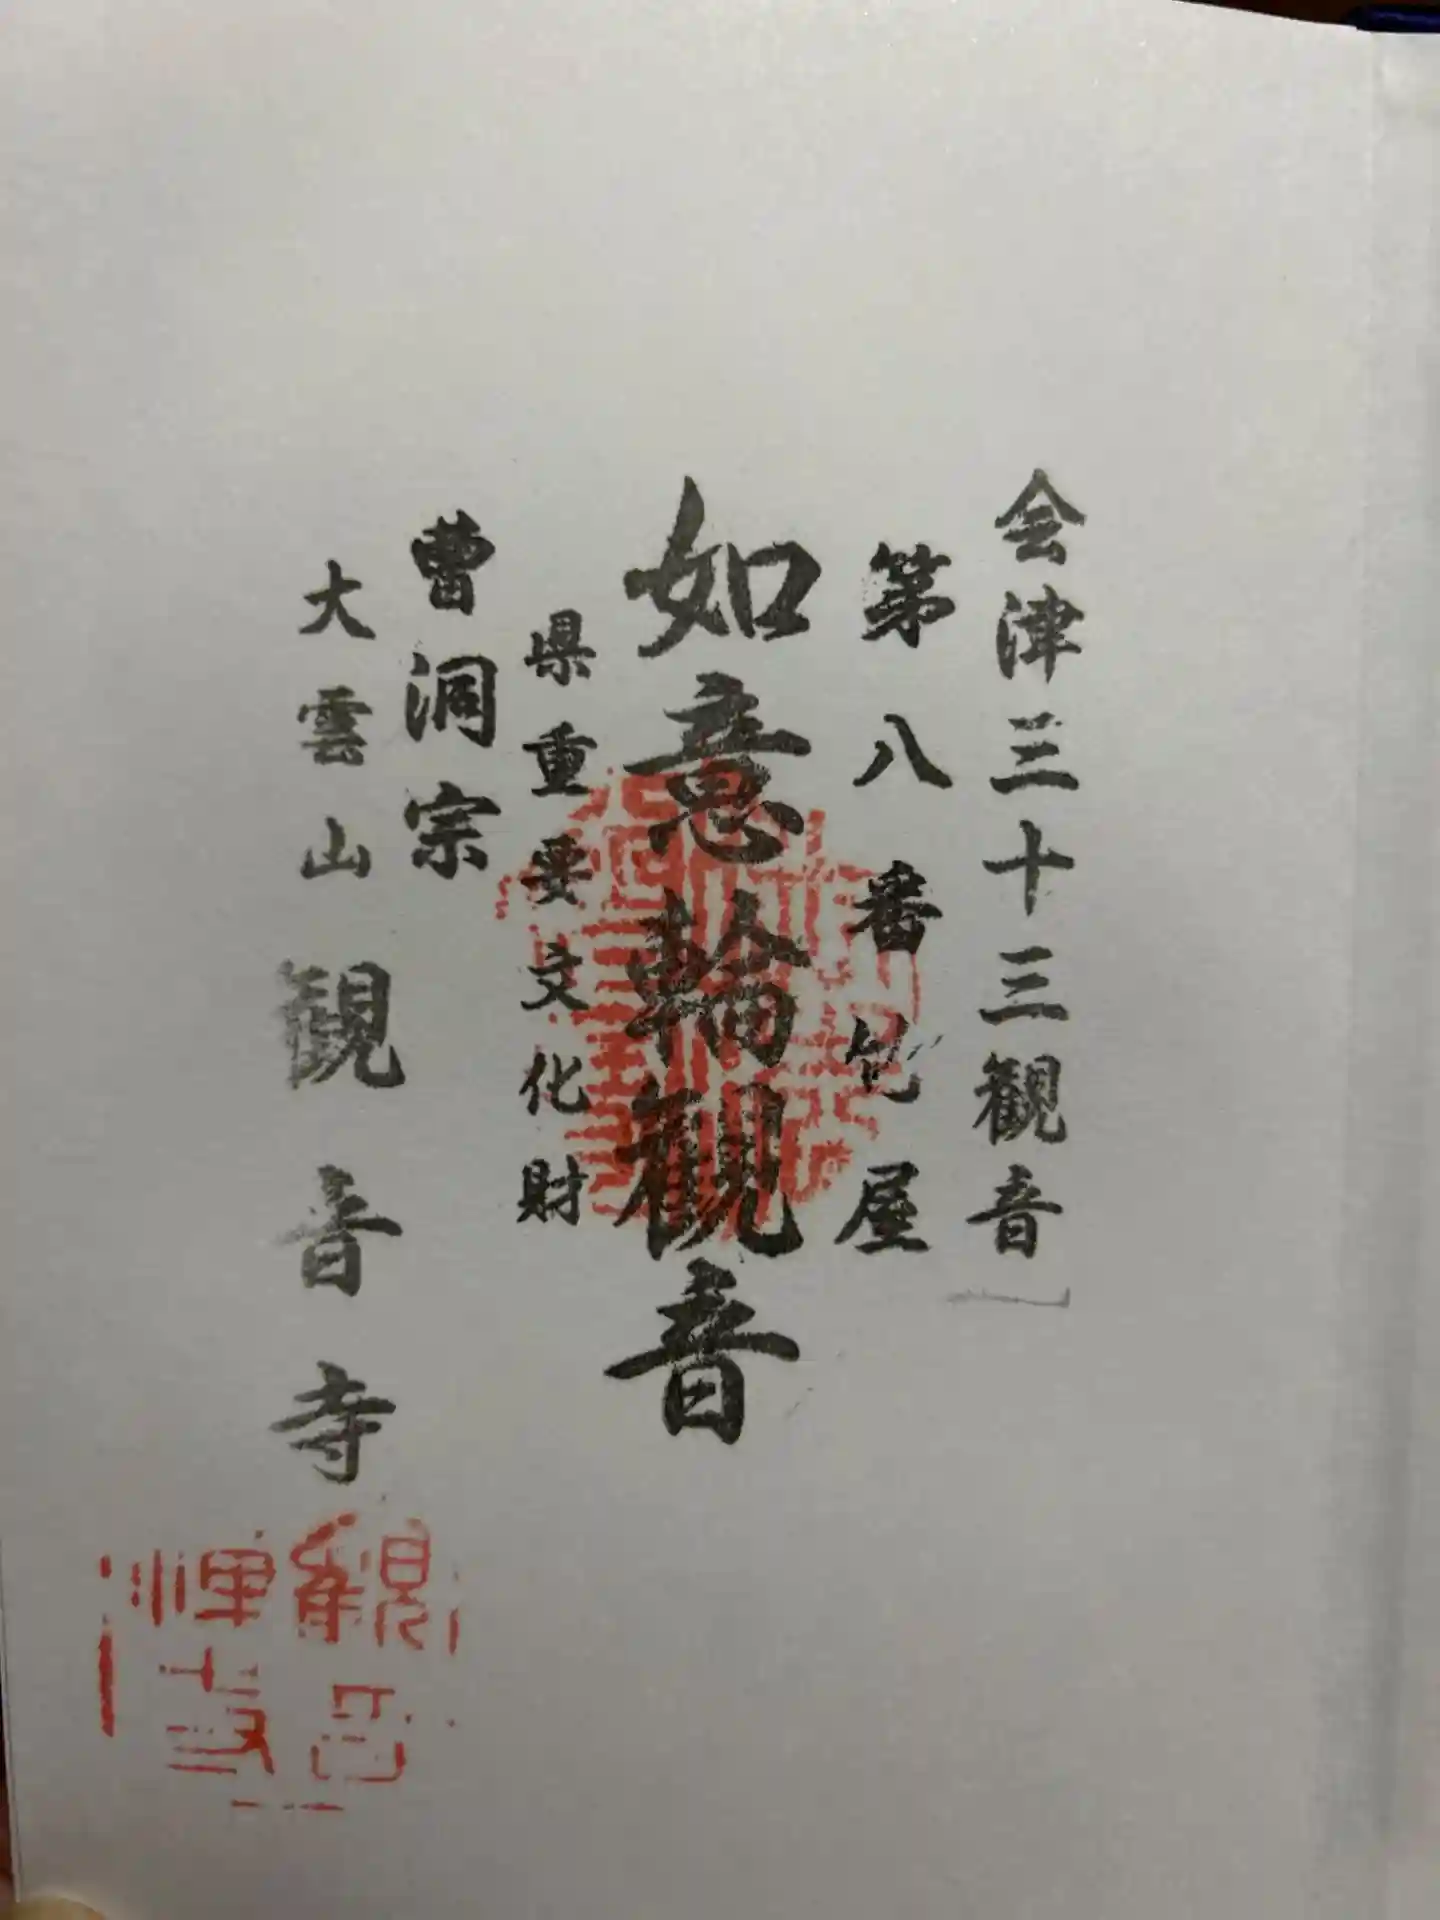 会津三十三観音
第八番竹屋
如意輪観音
県重要文化財
曹洞宗
大雲山観音寺